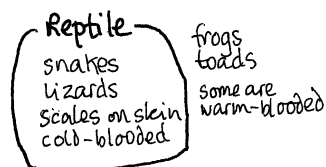 Reptile
snakes
lizards
scales on skin
cold-blooded
frogs
toads
some are
warm-blooded